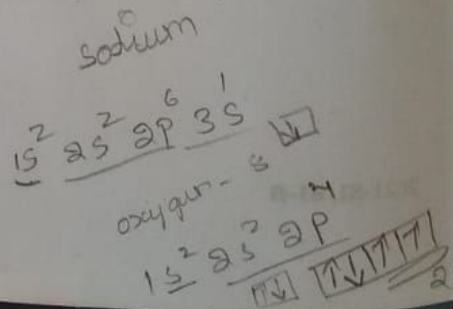 sodium
1s² 2s² 2p⁶ 3s¹
oxygen - 8
1s² 2s² 2p⁴
2